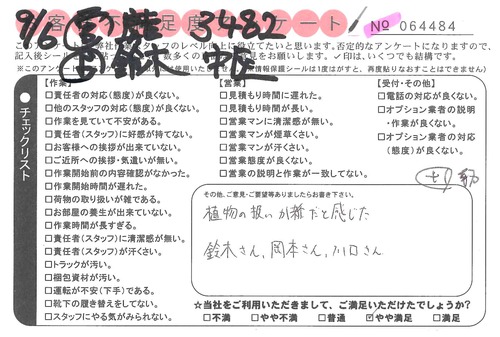 9/6 3482
お客様不満足度アンケート No 064484
このアンケートは弊社作業スタッフのレベル向上に役立てたいと思います。否定的なアンケートになりますので、
チェックリスト
【作業】
□責任者の対応(態度)が良くない。
□他のスタッフの対応(態度)が良くない。
□作業を見ていて不安がある。
□責任者(スタッフ)に好感が持てない。
□お客様への挨拶が出来ていない。
□ご近所への挨拶・気遣いが無い。
□作業開始前の内容確認がなかった。
□作業開始時間が遅れた。
□荷物の取り扱いが雑である。
□お部屋の養生が出来ていない。
□作業時間が長すぎる。
□責任者(スタッフ)に清潔感が無い。
□責任者(スタッフ)が汗くさい。
□トラックが汚い。
□梱包資材が汚い。
□運転が不安(下手)である。
□靴下の履き替えをしてない。
□スタッフにやる気がみられない。
【営業】
□見積もり時間に遅れた。
□見積もり時間が長い。
□営業マンに清潔感が無い。
□営業マンが煙草くさい。
□営業マンが汗くさい。
□営業態度が良くない。
□営業の説明と作業が一致してない。
【受付・その他】
□電話の対応が良くない。
□オプション業者の説明
・作業が良くない。
□オプション業者の対応
(態度)が良くない。
その他、ご意見・ご要望等ありましたらお書き下さい。
植物の扱いが雑だと感じた
鈴木さん、岡本さん、川口さん
☆当社をご利用いただきまして、ご満足いただけたでしょうか?
□不満 □やや不満 □普通 ☑やや満足 □満足